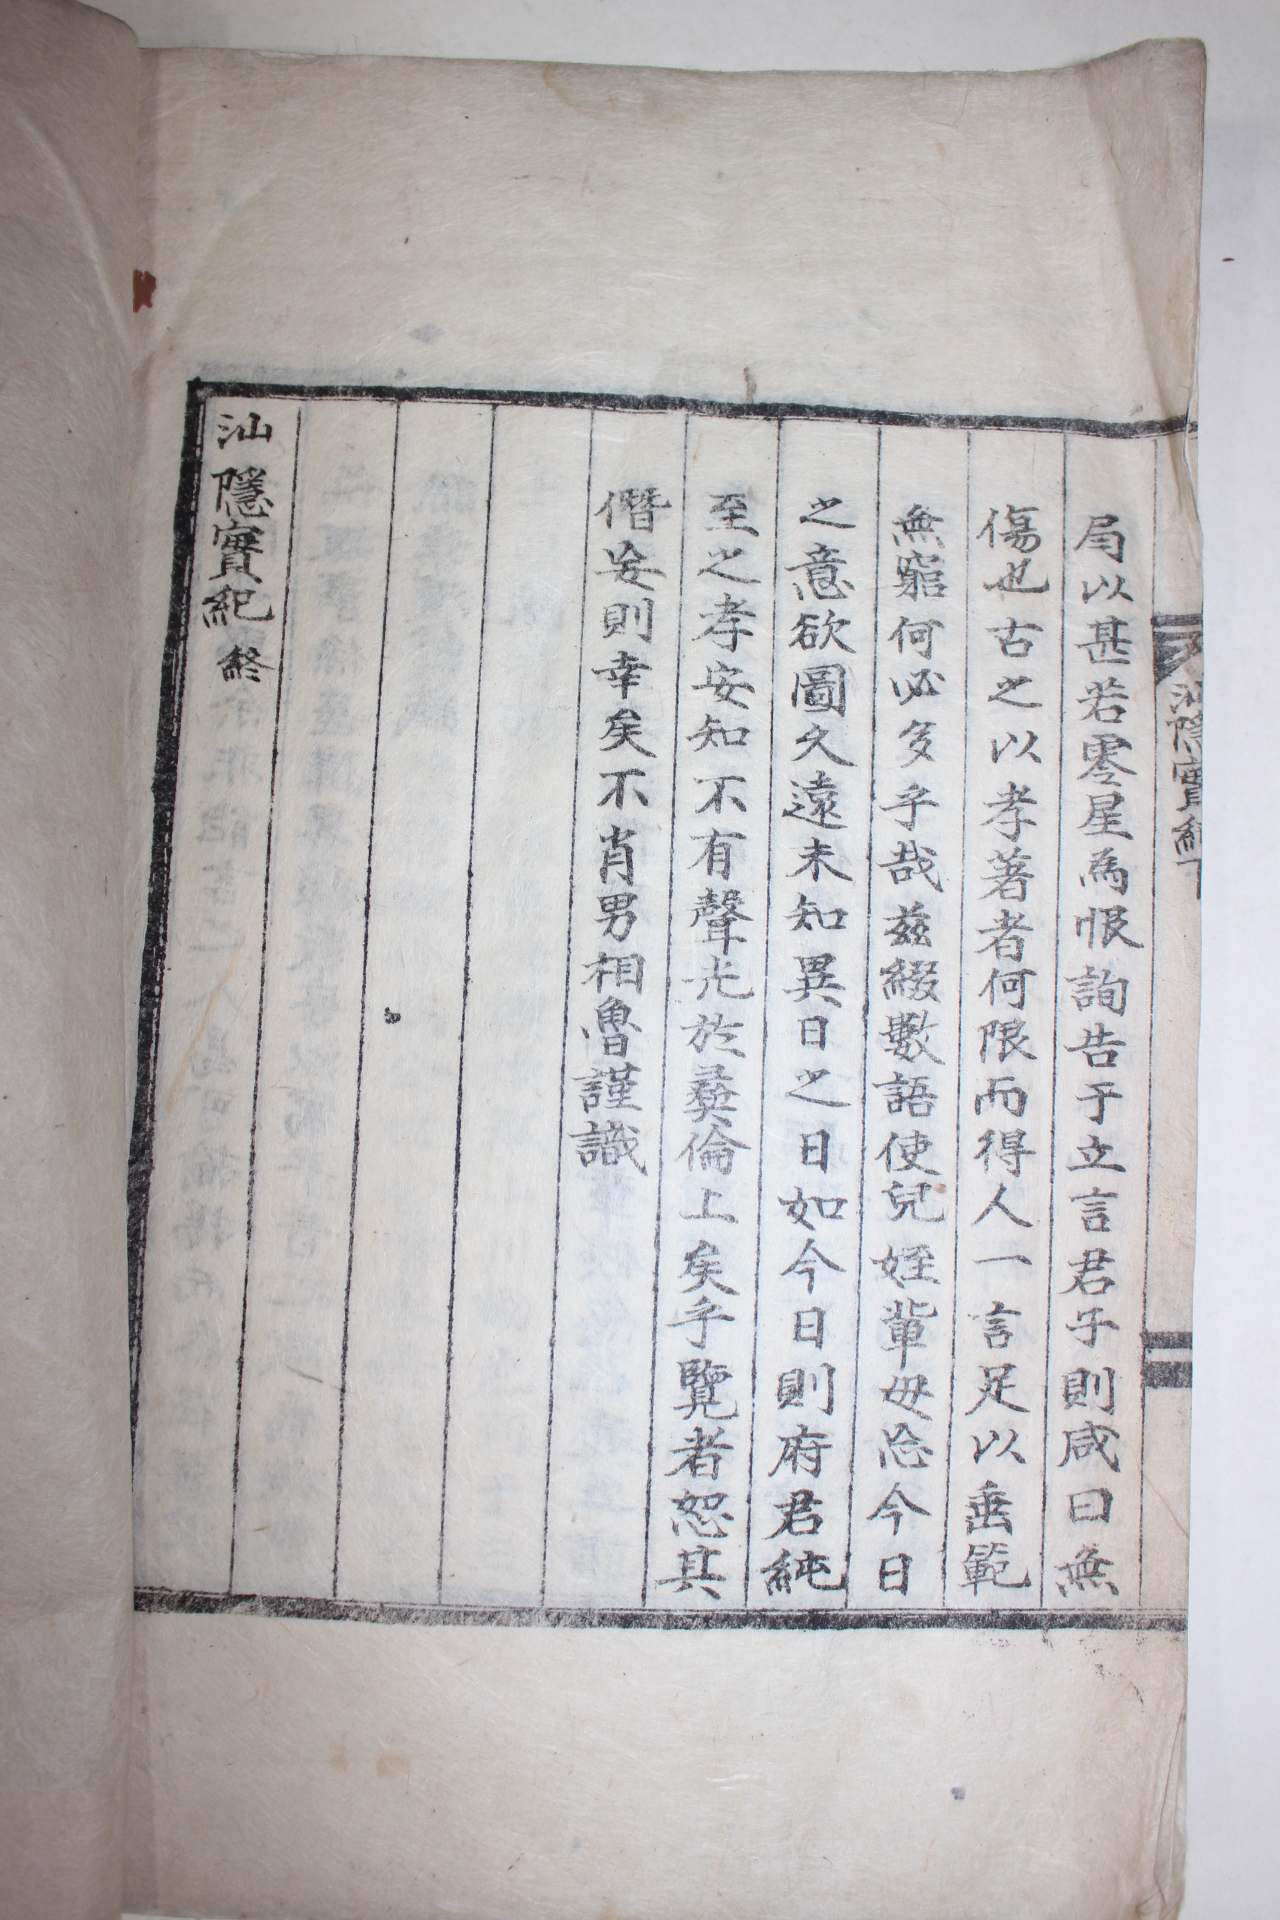 汕隱實紀下
局以甚若零星為恨詢告于立言君子則咸曰無
傷也古之以孝著者何限而得人一言足以垂範
無窮何必多乎哉玆綴數語使兒姪輩毋忘今日
之意欲圖久遠未知異日之日如今日則府君純
至之孝安知不有聲光於彛倫上矣乎覽者恕其
僭妄則幸矣不肖男相魯謹識
汕隱實紀終